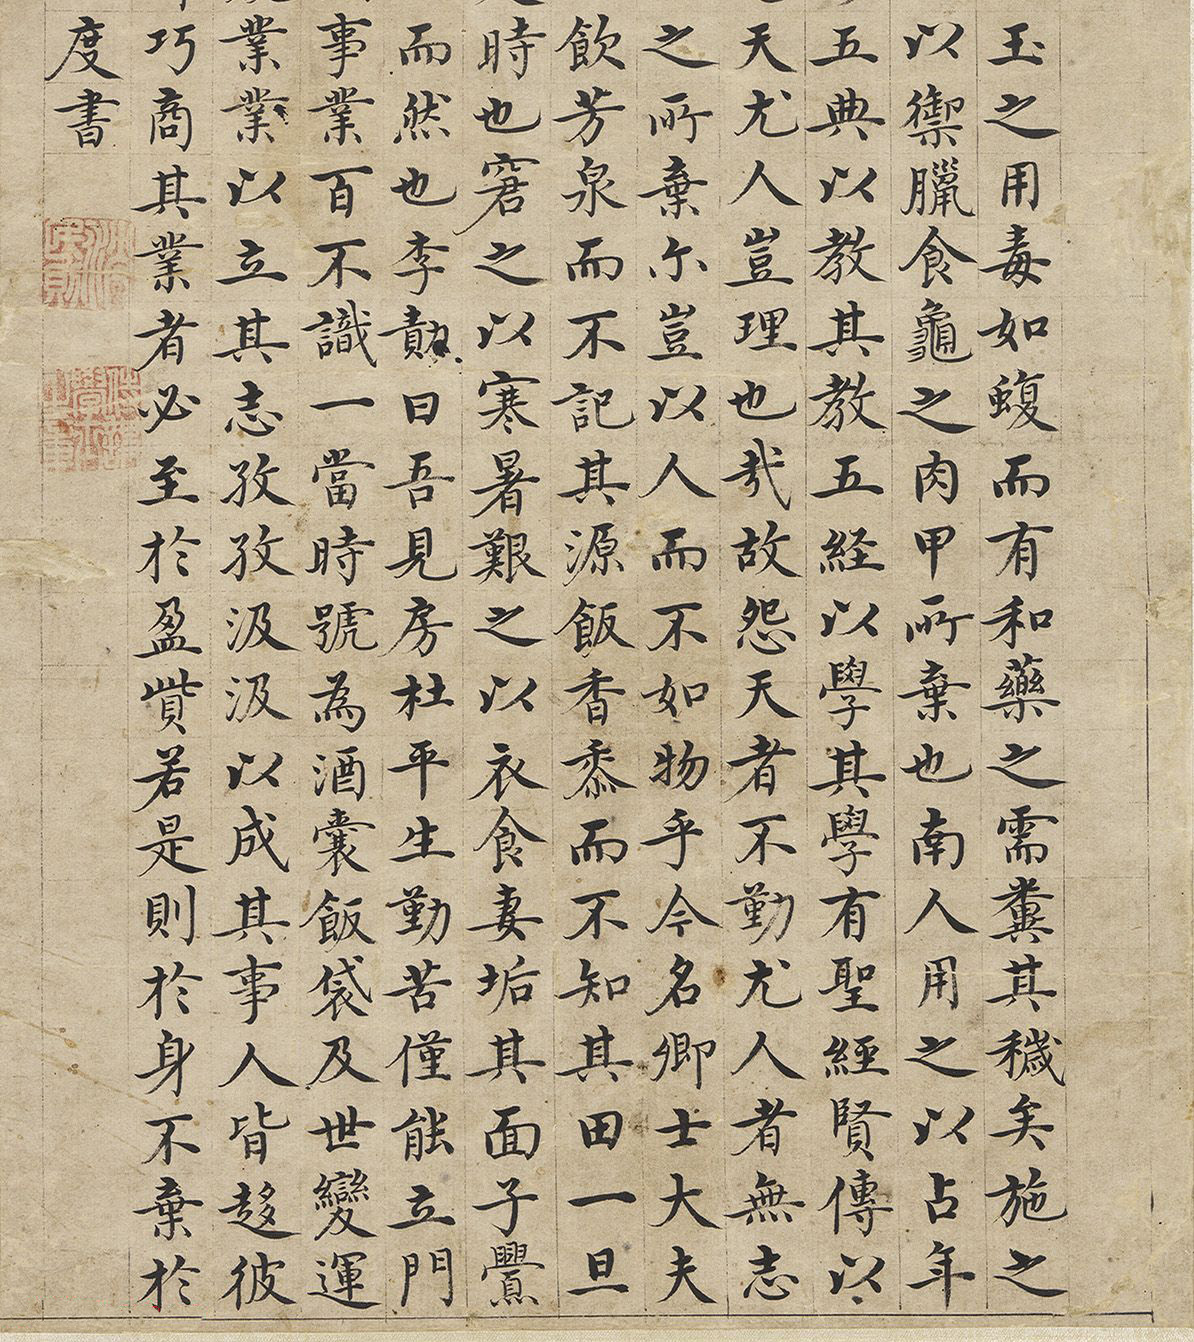 玉之用毒如蝮而有和藥之需糞其穢矣施之
以禦臘食龜之肉甲所棄也南人用之以占年
五典以教其教五経以學其學有聖經賢傳以
天尤人豈理也㢤故怨天者不勤尤人者無志
之所棄尓豈以人而不如物乎今名卿士大夫
飲芳泉而不記其源飯香黍而不知其田一旦
時也窘之以寒暑艱之以衣食妻垢其面子鷽
而然也李勣曰吾見房杜平生勤苦僅能立門
事業百不識一當時號為酒囊飯袋及世變運
業業以立其志孜孜汲汲以成其事人皆趍彼
巧商其業者必至於盈貲若是則於身不棄於
度書